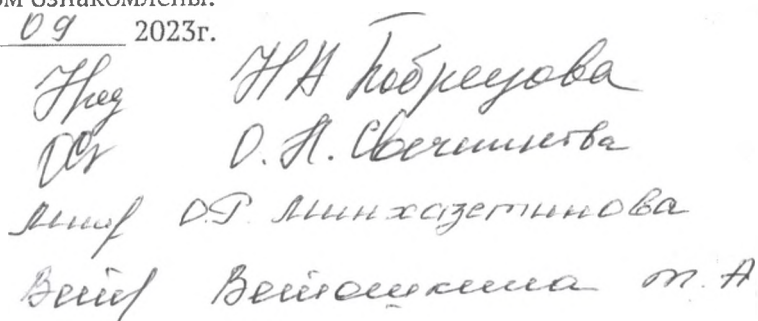 ом ознакомлены.
09 2023г.
Н А Бобрецова
О. Н. Свечникова
О.Р. Минхазетинова
Ветошкина Т. А